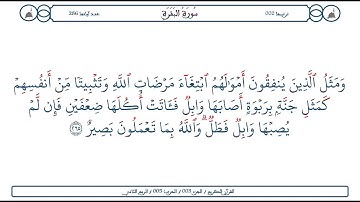 ترتيبها 002
سُورَةُ البَقَرَةِ
عدد آياتها 286
وَمَثَلُ ٱلَّذِينَ يُنفِقُونَ أَمْوَٰلَهُمُ ٱبْتِغَآءَ مَرْضَاتِ ٱللَّهِ وَتَثْبِيتًا مِّنْ أَنفُسِهِمْ
كَمَثَلِ جَنَّةٍۭ بِرَبْوَةٍ أَصَابَهَا وَابِلٌ فَـَٔاتَتْ أُكُلَهَا ضِعْفَيْنِ فَإِن لَّمْ
يُصِبْهَا وَابِلٌ فَطَلٌّ ۗ وَٱللَّهُ بِمَا تَعْمَلُونَ بَصِيرٌ ٢٦٥
القرآن الكريم / الجزء 003 / الحزب 005 /